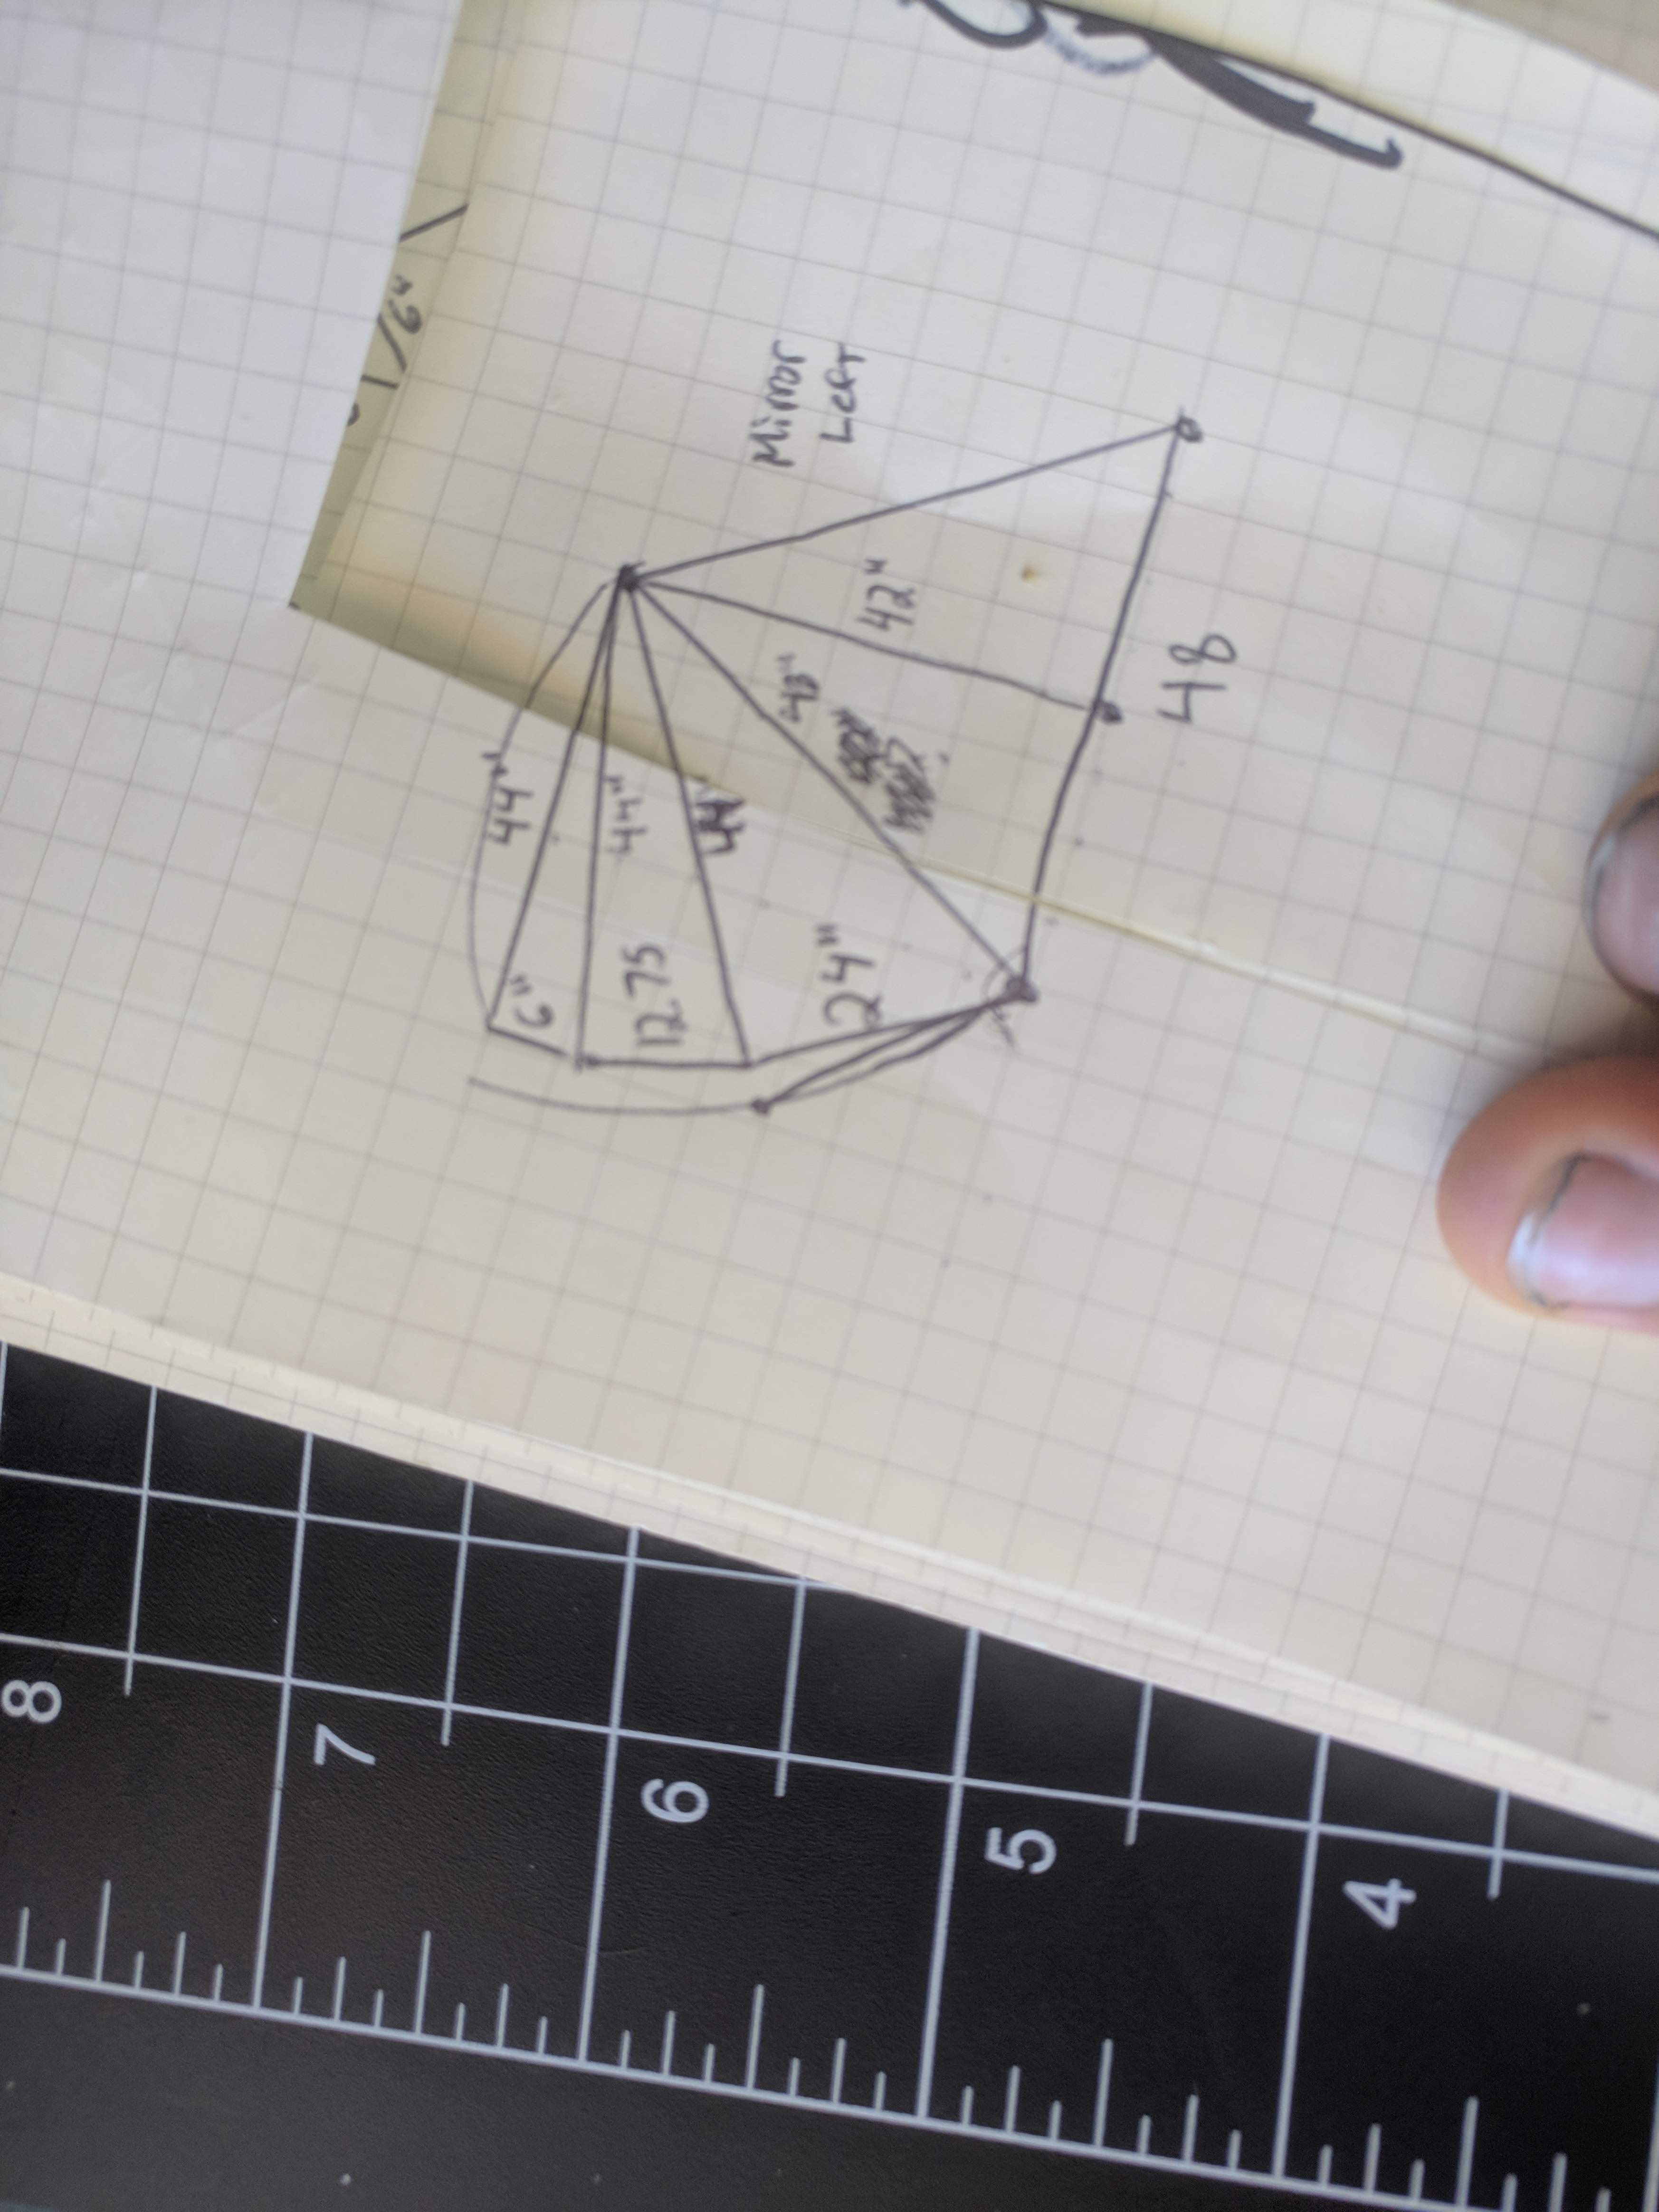 Mirror
Left
42"
48
43"
44"
44"
44"
24"
12.75
6"
8
7
6
5
4